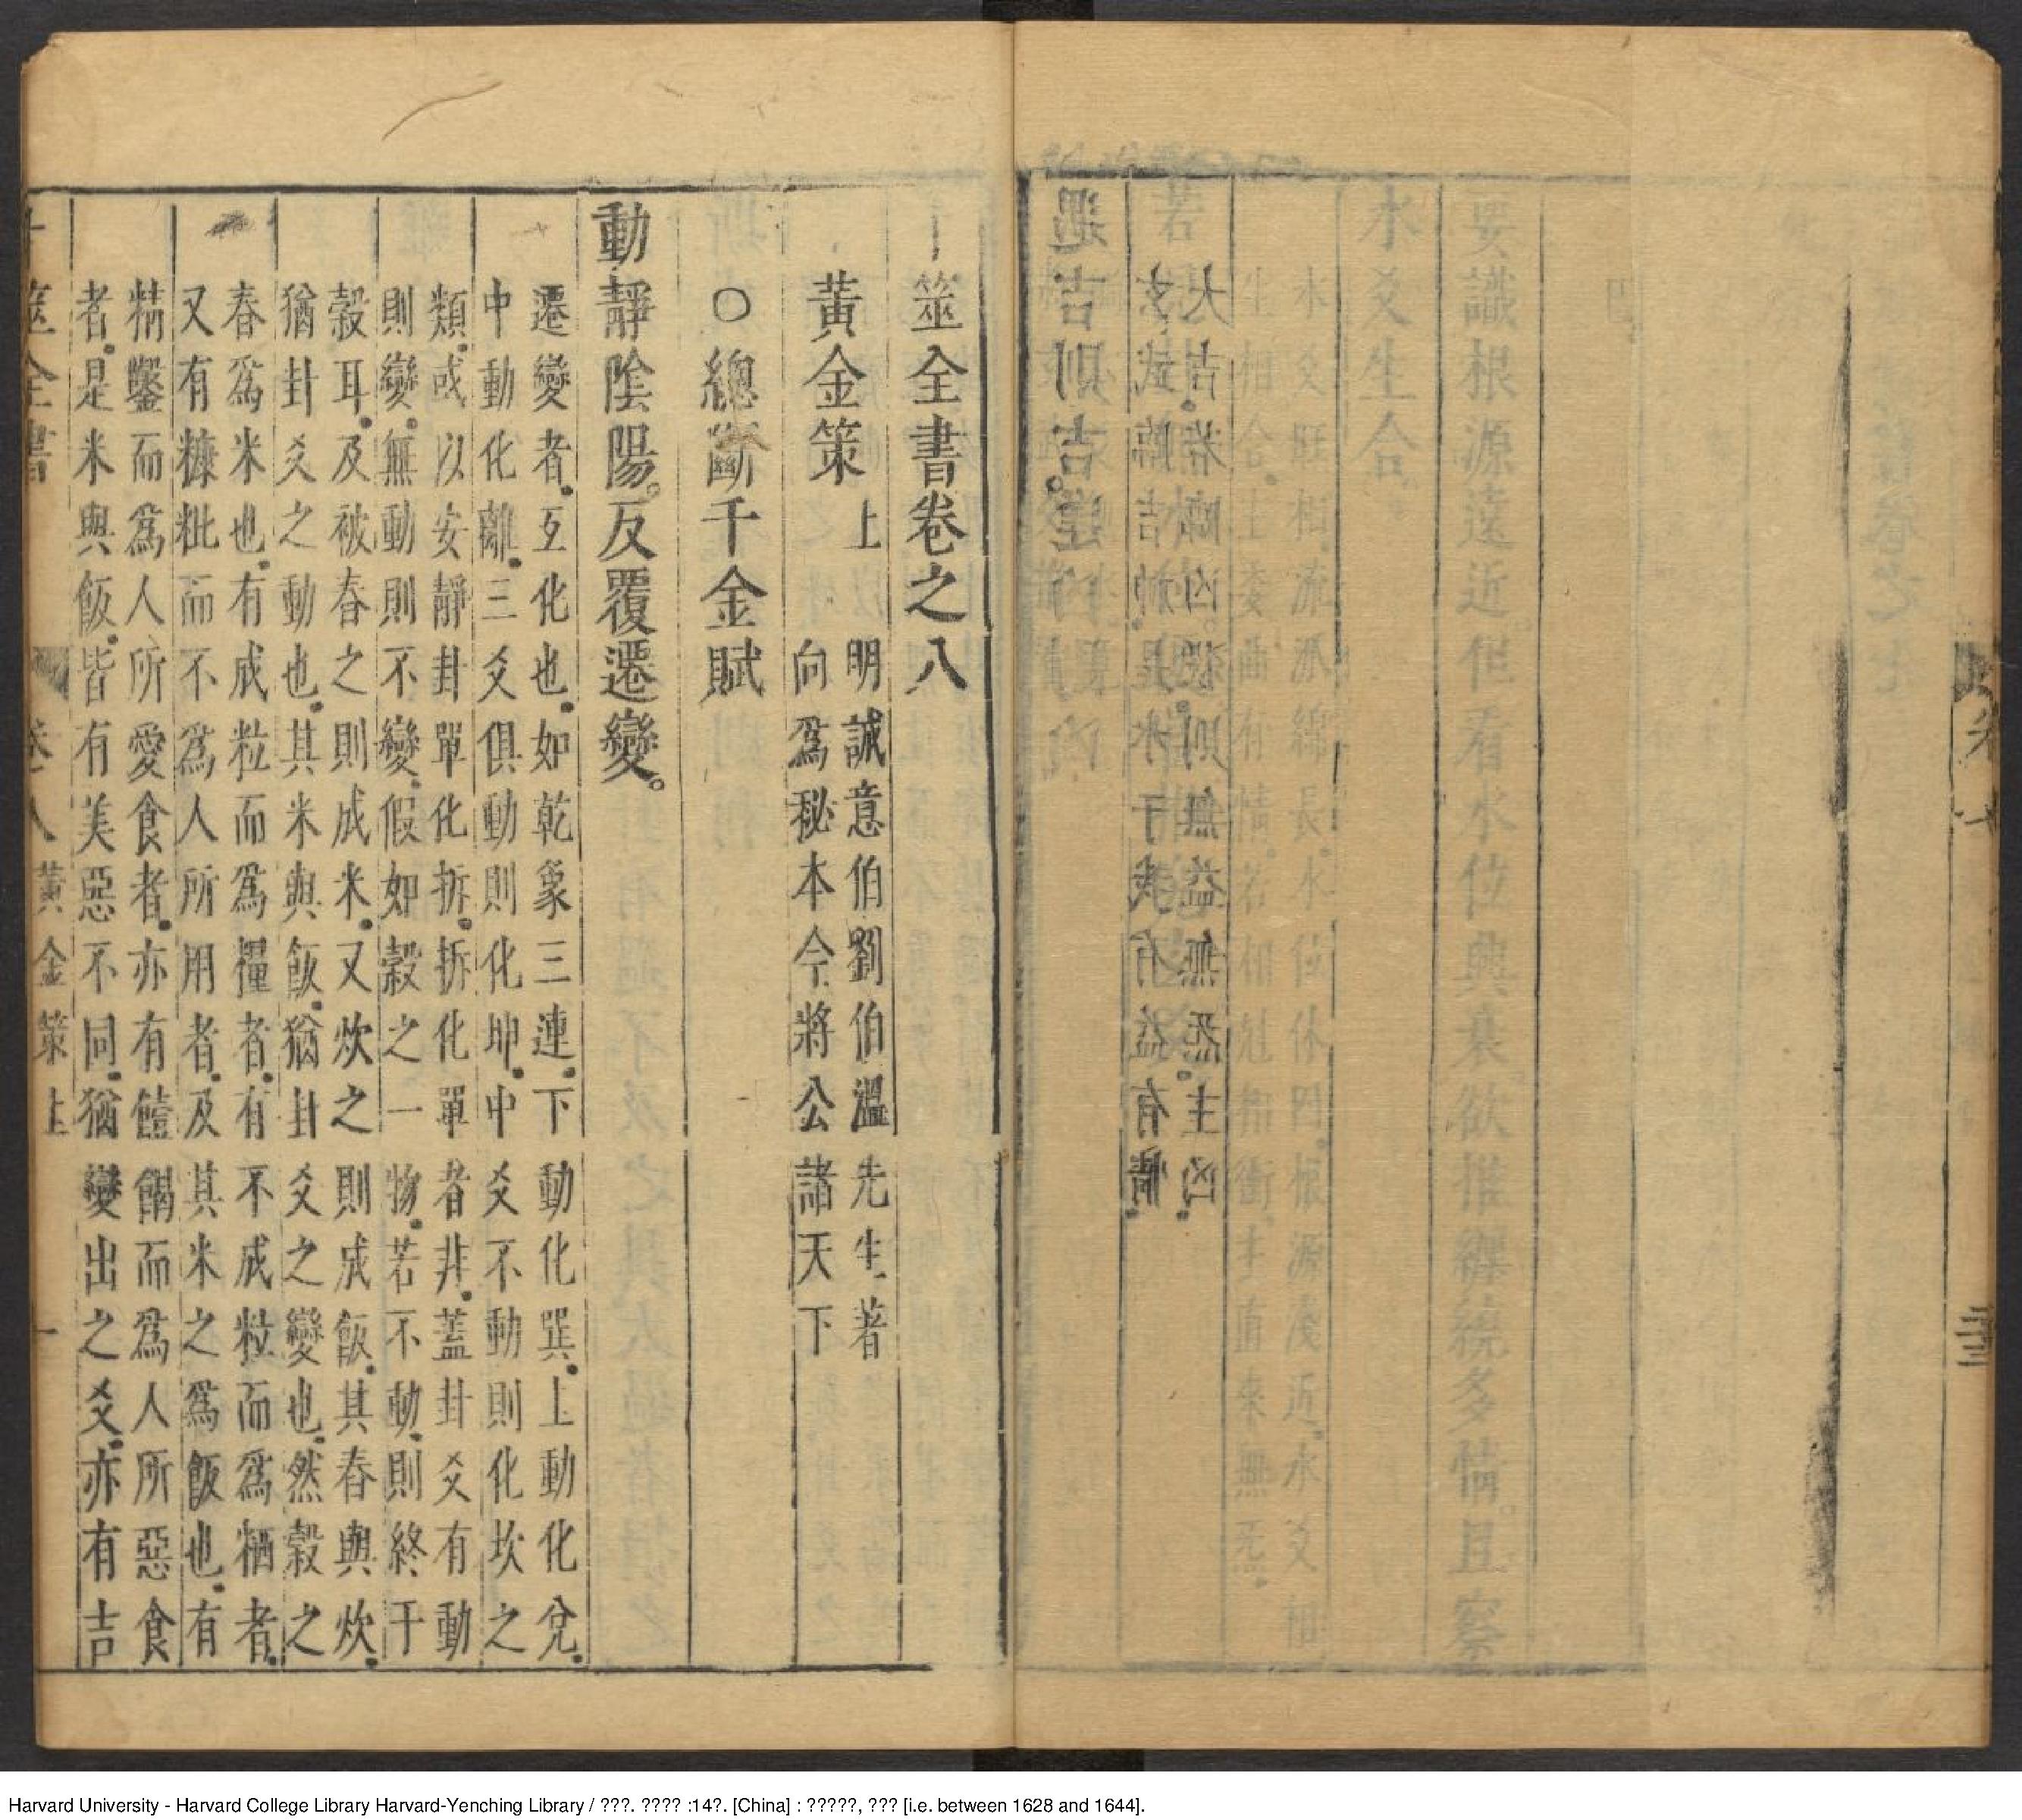 要識根源遠近但看水位興衰欲推纏繞多情且察
水爻生合。
水爻旺相流派綿長。水位休囚。根源淺近。水爻相
遇吉則吉。
卜筮全書卷之八
黃金策上
明誠意伯劉伯溫先生著
向爲秘本今將公諸天下
○總斷千金賦
動靜陰陽。反覆遷變。
遷變者。互化也。如乾象三連。下動化巽。上動化兌。
中動化離。三爻俱動則化坤。中爻不動則化坎之
類。或以安靜卦單化拆。拆化單者非。蓋卦爻有動
則變。無動則不變。假如穀之一物。若不動。則終于
穀耳。及被舂之則成米。又炊之則成飯。其舂與炊。
猶卦爻之動也。其米與飯。猶卦爻之變也。然穀之
舂爲米也。有成粒而爲糧者。有不成粒而爲粞者。
又有糠粃而不爲人所用者。及其米之爲飯也。有
精鑿而爲人所愛食者。亦有饐餲而爲人所惡食
者。是米與飯。皆有美惡不同。猶變出之爻。亦有吉
卜筮全書 卷八 黃金策上 一
Harvard University - Harvard College Library Harvard-Yenching Library / ???. ???? :14?. [China] : ?????, ??? [i.e. between 1628 and 1644].